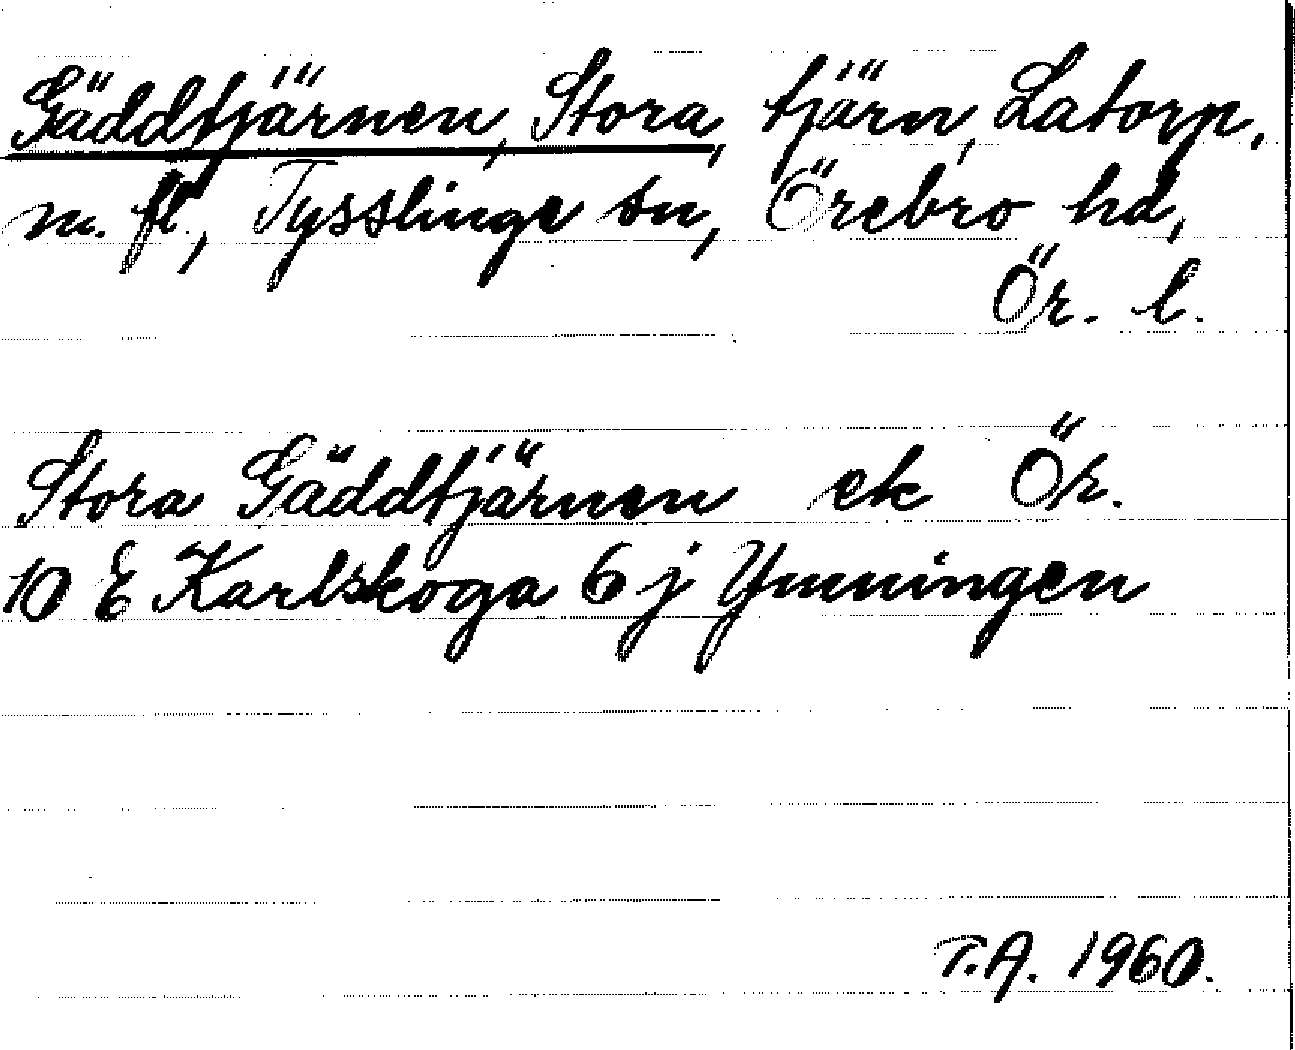 Gäddtjärnen, Stora, tjärn, Latorp,
m. fl., Tysslinge sn, Örebro hd,
Ör. l.
Stora Gäddtjärnen ek Ör.
10 E Karlskoga 6 j Ymningen
T.A. 1960.